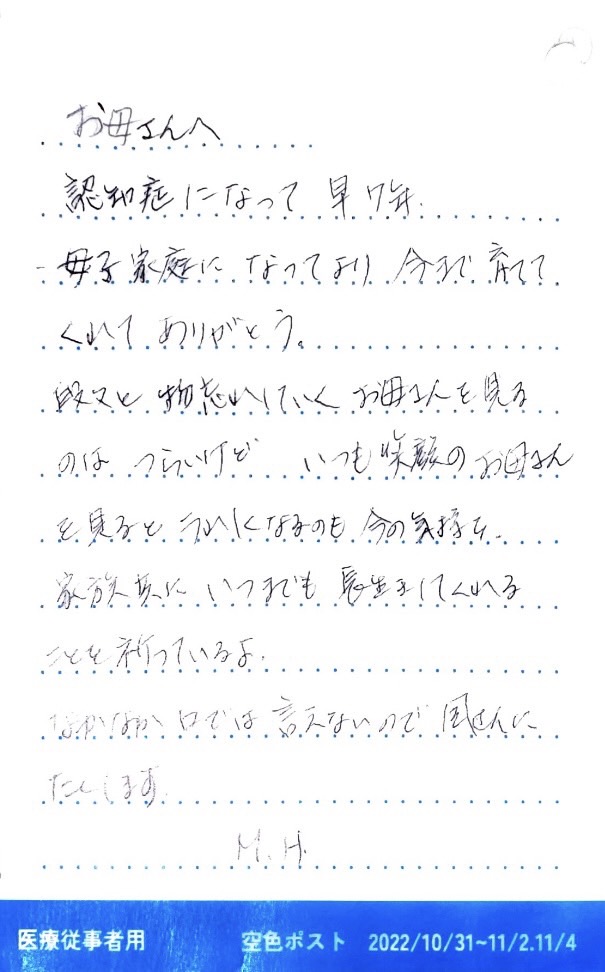 お母さんへ
認知症になって 早7年.
母子家庭に なってより 今まで 育てて
くれて ありがとう。
段々と 物忘れしていく お母さんを見る
のは つらいけど いつも笑顔の お母さん
を見ると うれしくなるのも 今の気持ち.
家族共に いつまでも 長生きしてくれる
ことを祈っているよ.
なかなか 口では 言えないので 風さんに
たくします.
M.H.
医療従事者用 空色ポスト 2022/10/31~11/2.11/4